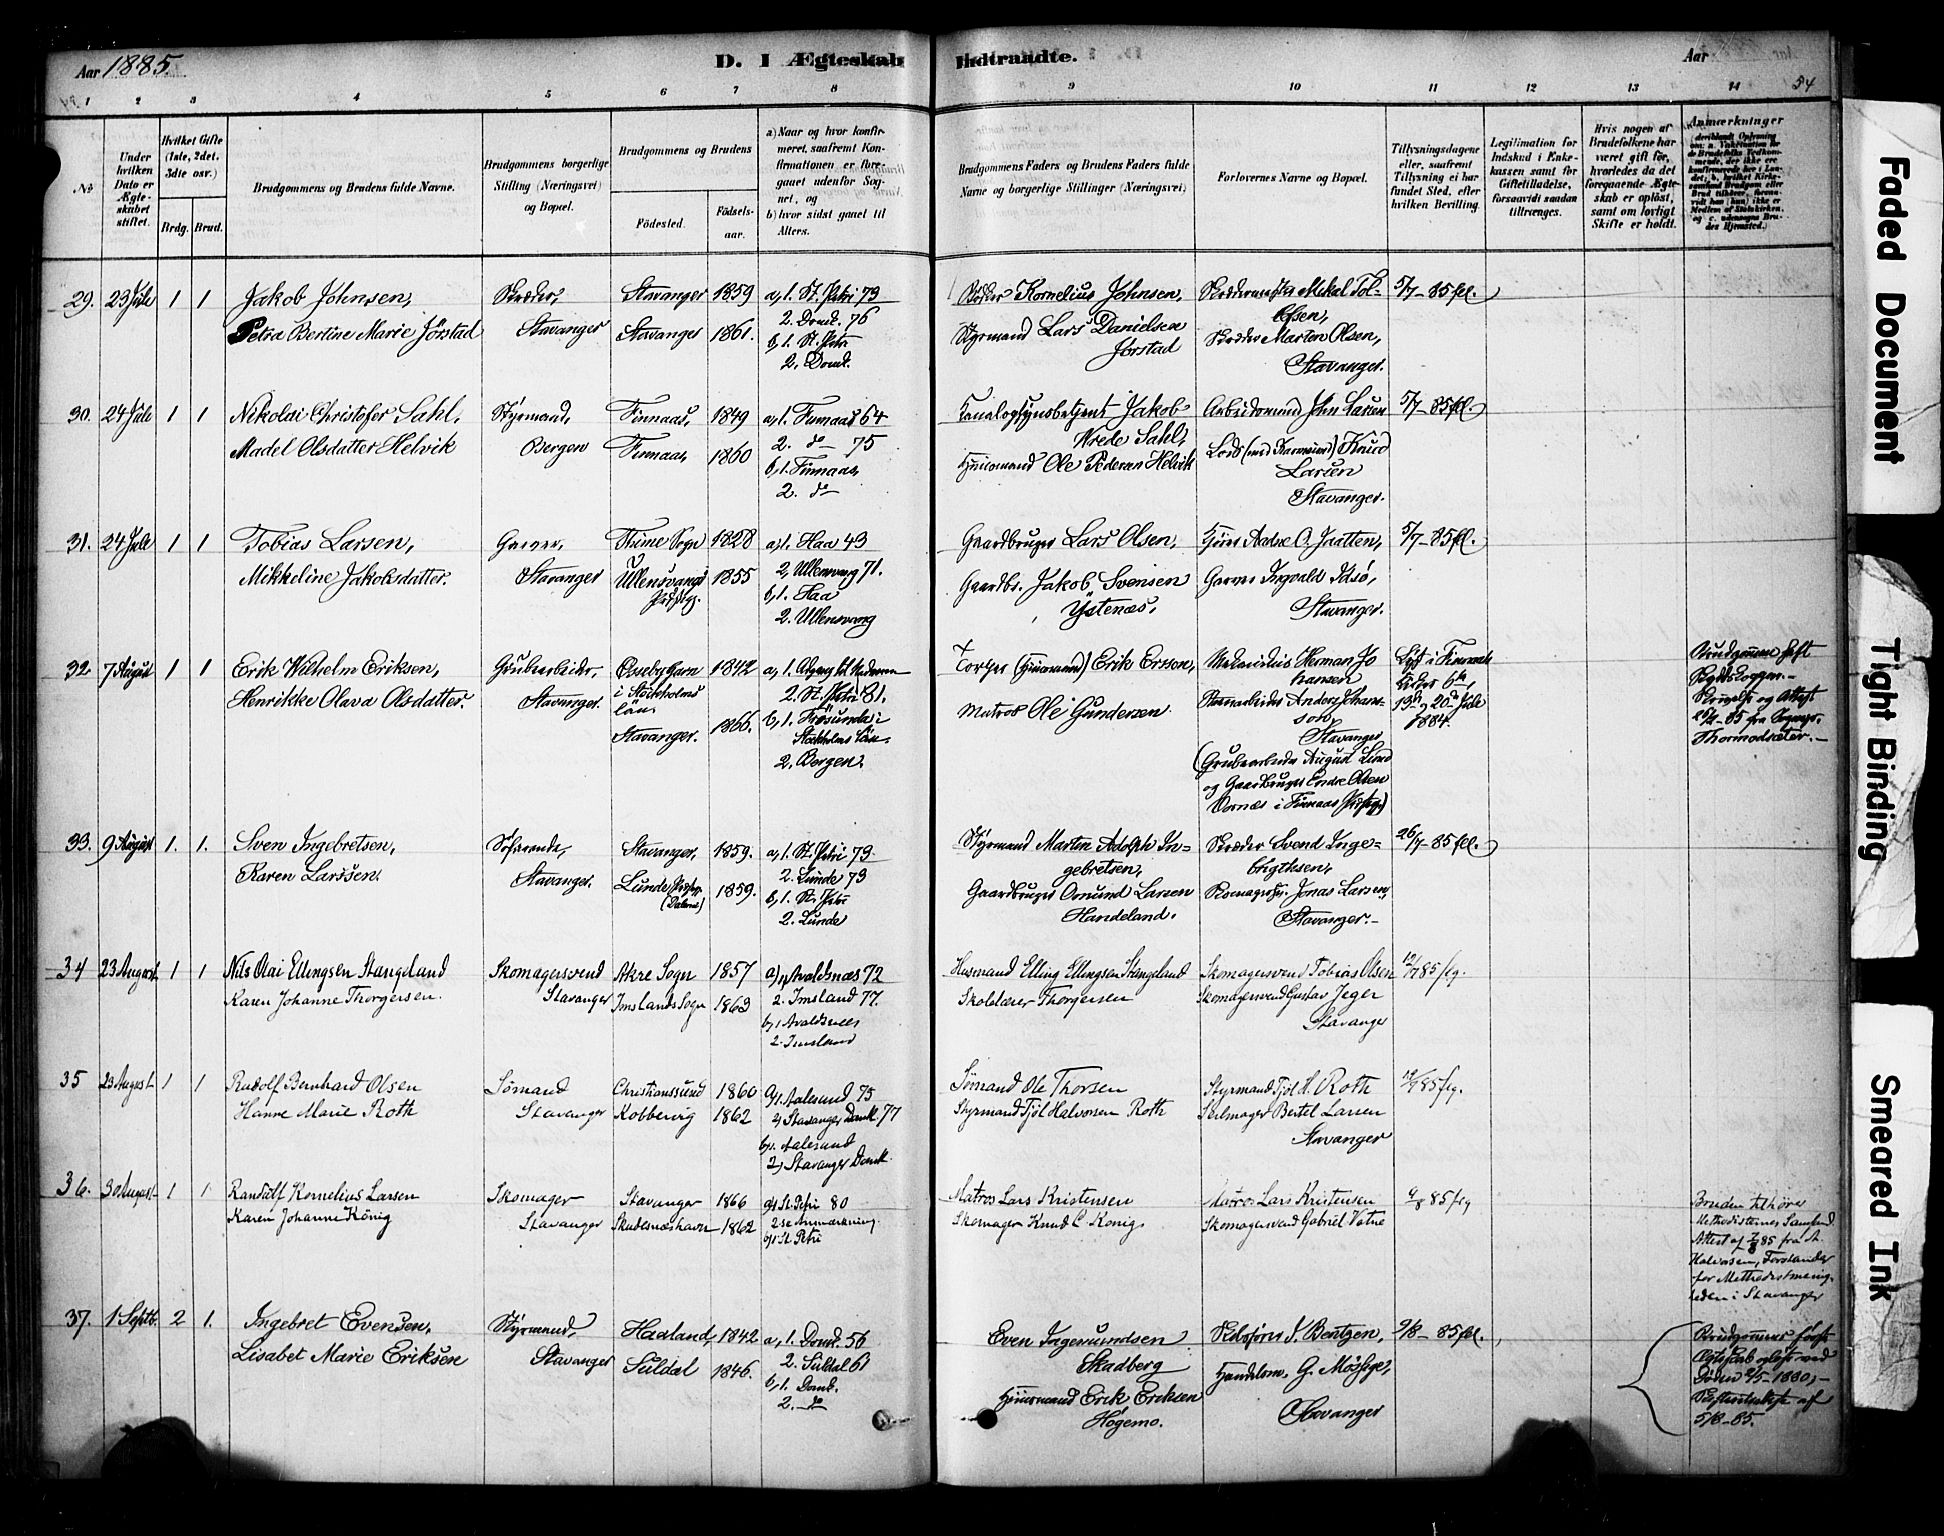 Aar 1885.
D. I Ægteskab Indtraadte.
Aar
54
1 2 3 4 5 6 7 8 9 10 11 12 13 14
No.
Under hvilken Dato er Ægteskabet stiftet.
Hvilket Gifte (1ste, 2det, 3die osv.)
Brdg. Brud.
Brudgommens og Brudens fulde Navne.
Brudgommens borgerlige Stilling (Næringsvei) og Bopæl.
Brudgommens og Brudens
Födested.
Födsels-aar.
a) Naar og hvor konfirmeret, saafremt Konfirmationen er foregaaet udenfor Sognet, og
b) hvor sidst gaaet til Alters.
Brudgommens Faders og Brudens Faders fulde Navne og borgerlige Stillinger (Næringsvei)
Forlovernes Navne og Bopæl.
Tillysningsdagene eller, saafremt Tillysning ei har fundet Sted, efter hvilken Bevilling.
Legitimation for Indskud i Enkekassen samt for Giftetilladelse, forsaavidt saadan tiltrænges.
Hvis nogen af Brudefolkene har været gift før, hvorledes da det foregaaende Ægteskab er oplöst, samt om lovligt Skifte er holdt.
Anmærkninger
29. 23 Juli 1 1 Jakob Johnsen,
Petra Bertine Marie Jörstad
Skræder,
Stavanger
Stavanger 1859
Stavanger 1861.
a, 1. St. Petri 73
2. Domk. 76
b, 1. St. Petri
2. Domk.
Bödker Kornelius Johnsen,
Styrmand Lars Danielsen
Jörstad
Skrædermester Mikal Tol-
lefsen,
Skræder Marten Olsen,
Stavanger.
5/7-85 fl.
30. 24 Juli 1 1 Nikolai Christofer Sahl,
Madel Olsdatter Helvik
Styrmand,
Bergen
Finnaas, 1849
Finnaas, 1860
a, 1. Finnaas 64
2. do 75
b, 1. Finnaas
2. do
Jakob
Wrede Sahl,
Husmand Ole Pedersen Helvik
Arbeidsmand John Larsen
Knud
Larsen
Stavanger.
5/7-85 fl.
31. 24 Juli 1 1 Tobias Larsen,
Mikkeline Jakobsdatter.
Garver,
Stavanger
Thime Sogn 1828
Ullensvangs 1855
Præstgj.
a, 1. Haa 43
2, Ullensvang 71.
b, 1. Haa
2. Ullensvang
Gaardbruger Lars Olsen,
Gaardbr. Jakob Svensen
Ystenæs,
Garver Ingvald Idsø,
Stavanger.
5/7-85 fl.
32 7 August 1 1 Erik Wilhelm Eriksen,
Henrikke Olava Olsdatter.
Grubearbeider,
Stavanger.
Össeby Garn 1842
i Stockholms
län.
Stavanger. 1866.
2. St. Petri 81.
b, 1. Frösunda i
Stockholms län.
2. Bergen.
Erik Ersson,
Matros Ole Gundersen
Herman Jo
hansen
Stenarbeider Anders Johans-
son,
Stavanger
(Grubearbeider August Lund
og Gaardbruger Endre Olsen
Vornæs i Finnaas Præstgj.)
Lyst i Finnaas
Kirke 6te,
13de og 20de Juli
1884.
Thormodsæter.
33. 9 August 1. 1. Sven Ingebretsen,
Karen Larssen
Söfarende,
Stavanger.
Stavanger, 1859.
Lunde Præstgj. 1859.
(Dalene)
a, 1. St. Petri 73.
2. Lunde 73
b, 1. St. Petri
2. Lunde
Styrmand Marten Adolph In-
gebretsen,
Gaardbruger Omund Larsen
Handeland.
Skræder Svend Inge-
brigtsen,
Jonas Larsen,
Stavanger.
26/7-85 fl.
34 23 August 1 1 Nils Olai Ellingsen Stangeland
Karen Johanne Thorgersen.
Skomagersvend
Stavanger
Akre Sogn 1857
Imslands Sogn 1863
a, 1, Avaldsnæs 72
2. Imsland 77.
b, 1 Avaldsnæs
2. Imsland
Husmand Elling Ellingsen Stangeland
Skolelærer Thorgersen
Skomagersvend Tobias Olsen
Skomagersvend Gustav Jeger
Stavanger
12/7 85 flg.
35 23 August 1 1 Rudolf Bernhard Olsen
Hanne Marie Roth
Sømand
Stavanger
Christianssund 1860
Kobbervig 1862
a, 1. Aalesund 75
2, Stavanger Domk. 77
b, 1. Aalesund
2, Stavanger Domk.
Sømand Ole Thorsen
Styrmand Tjöl Halvorsen Roth
Styrmand Tjöl H. Roth
Seilmager Bertel Larsen
Stavanger
85 flg.
36. 30 August 1 1 Randulf Kornelius Larsen
Karen Johanne König
Skomager
Stavanger
Stavanger 1866
Skudesneshavn 1862
a, 1 St. Petri 80
2 se Anmærkning
b, 1 St. Petri
Matros Lars Kristensen
Skomager Knud C. König
Matros Lars Kristensen
Skomagersvend Gabriel Vatne
9/8 85 flg
Bruden tilhører
Methodisternes Samfund.
Attest af 7/8 85 fra A.
Halvorsen, Forstander
for Methodistmenig-
heden i Stavanger
37. 1 Septb. 2 1. Ingebret Evensen,
Lisabet Marie Eriksen
Styrmand,
Stavanger
Haaland, 1842
Suldal 1846.
a, 1. Domk. 56
2. Suldal 61
b, 1. Domk.
2. do
Even Ingemundsen
Skadberg
Husmand Erik Eriksen
Högemo.
J. Bentzen,
Handelsm. G. Mössige,
Stavanger
9/8-85 fl.
Brudgommens förste
Ægteskab oplöst ved
Döden 2/5-1880,
Skifteattest af
5/8-85.
Faded Document
Tight Binding
Smeared Ink